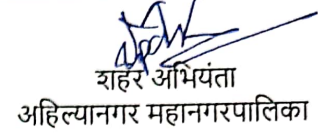 शहर अभियंता
अहिल्यानगर महानगरपालिका